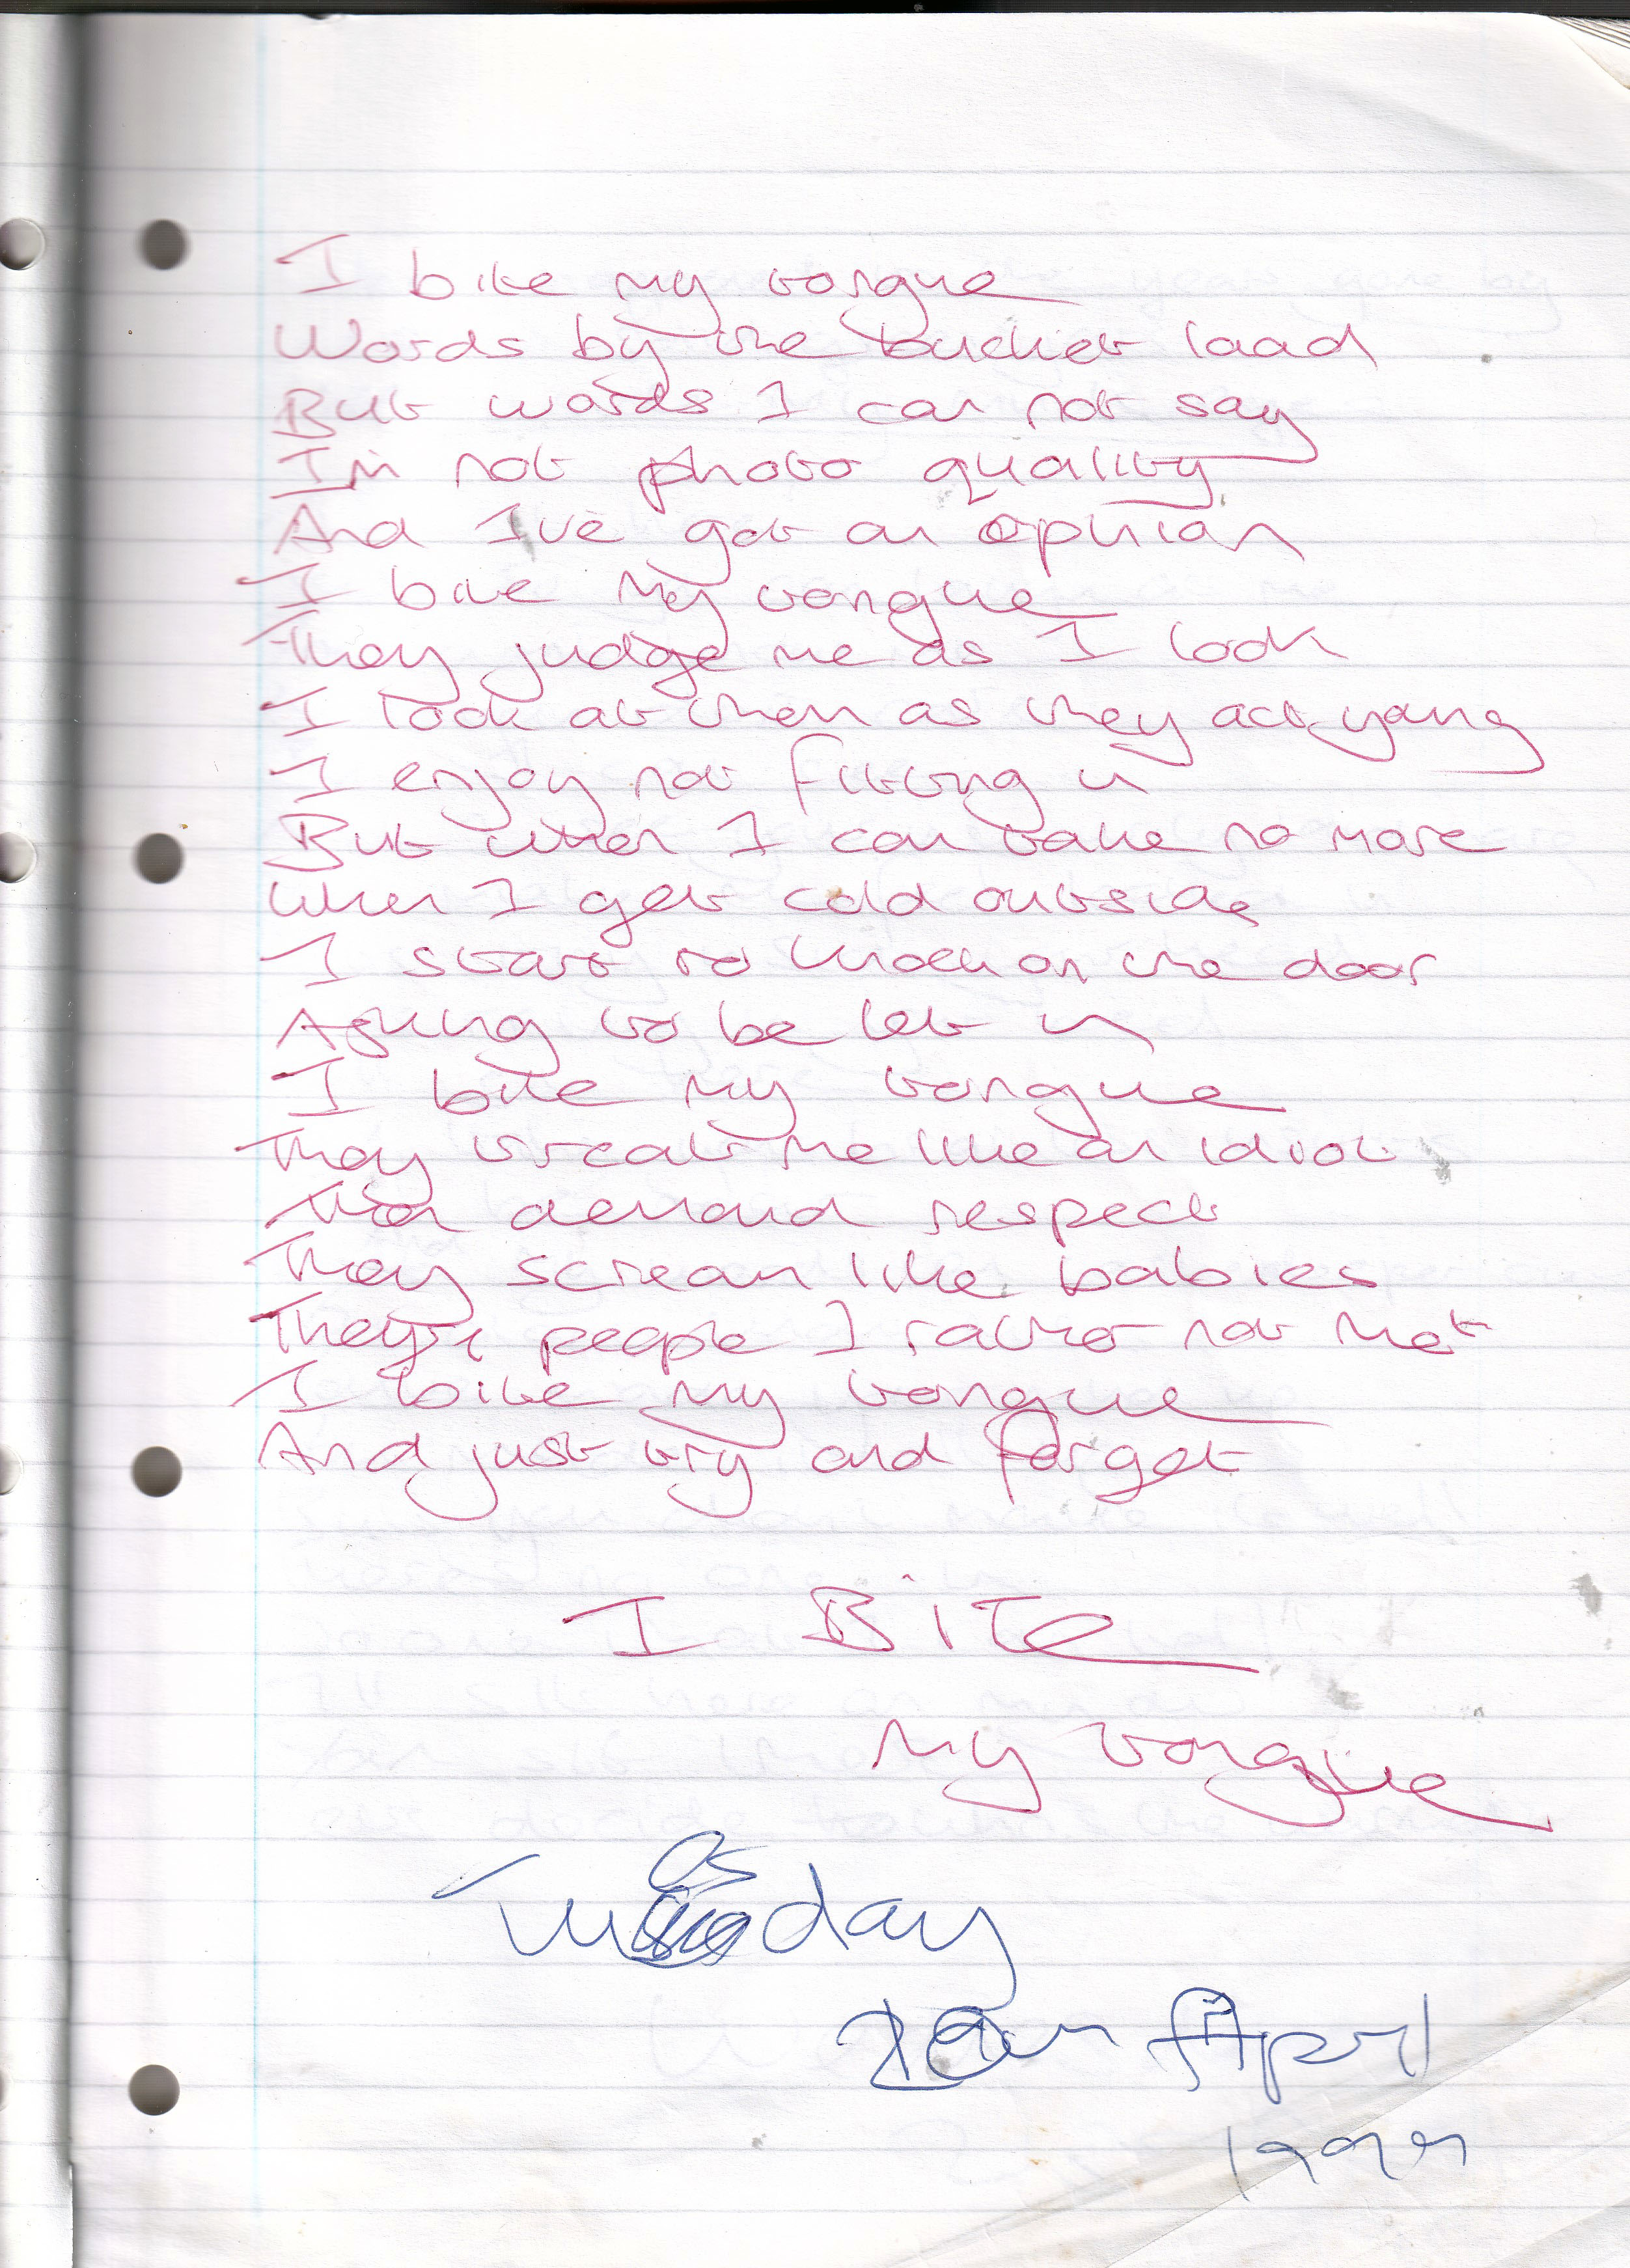 I bite my tongue
Words by the bucket load
But words I can not say
I'm not photo quality
And I've got an opinion
I bite my tongue
They judge me as I look
I look at them as they act young
I enjoy not fitting in
But when I can take no more
When I get cold outside
I start to knock on the door
Asking to be let in
I bite my tongue
They treat me like an idiot
Then demand respect
They scream like babies
They're people I rather not met
I bite my tongue
And just try and forget
I Bite
My tongue
April